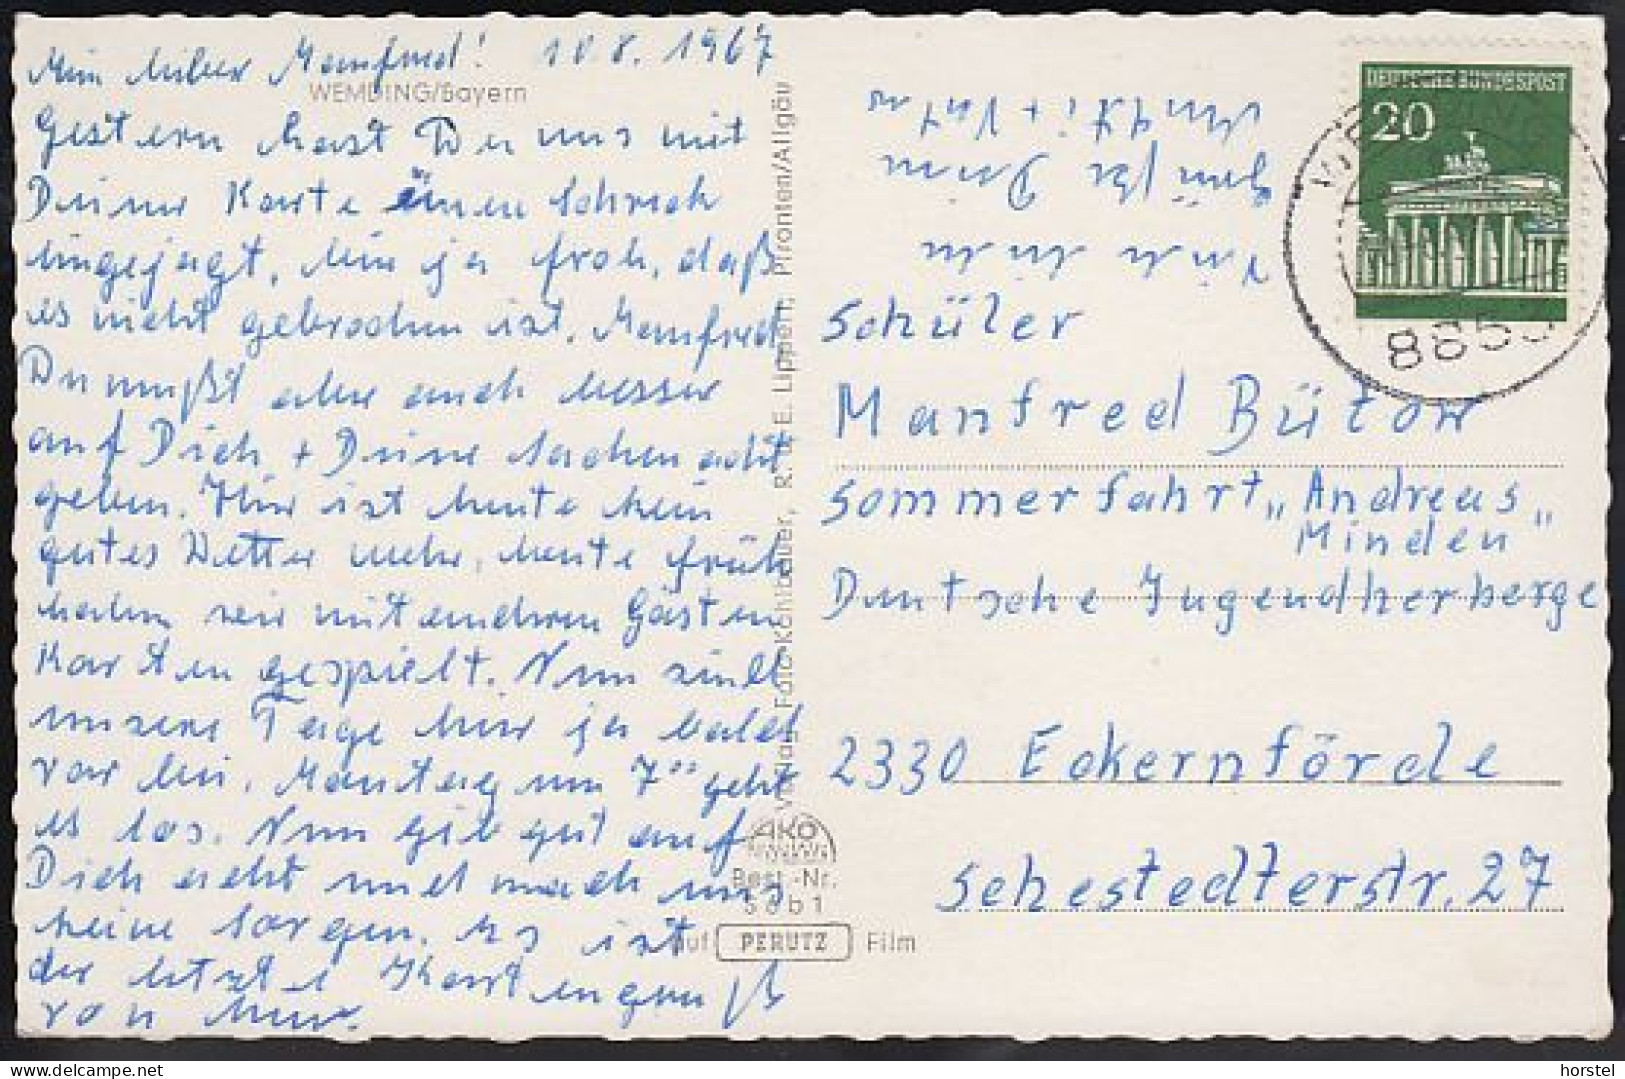 Mein lieber Manfred! 10.8.1967
WEMDING/Bayern
Gestern hast Du uns mit
Deiner Karte einen Schreck
eingejagt, bin ja froh, daß
es nicht gebrochen ist. Manfred
Du mußt aber auch besser
auf Dich + Deine Sachen acht
geben. Hier ist heute kein
gutes Wetter mehr, heute früh
haben wir mit anderen Gästen
Karten gespielt. Nun sind
unsere Tage hier ja bald
vorbei, Montag um 7°° geht
es los. Nun gib gut auf
Dich acht und mach uns
keine Sorgen. Es ist
der letzte Kartengruß
von hier.
Viele liebe
Grüße Deine
Mutti + Vater
Lippert, Pfronten/Allgäu
AKO
Best.-Nr.
auf PERUTZ Film
DEUTSCHE BUNDESPOST
20
Schüler
Manfred Bütow
Sommerfahrt „Andreas"
Minden
Deutsche Jugendherberge
2330 Eckernförde
Sehestedterstr. 27
horstel
© Delcampe.net